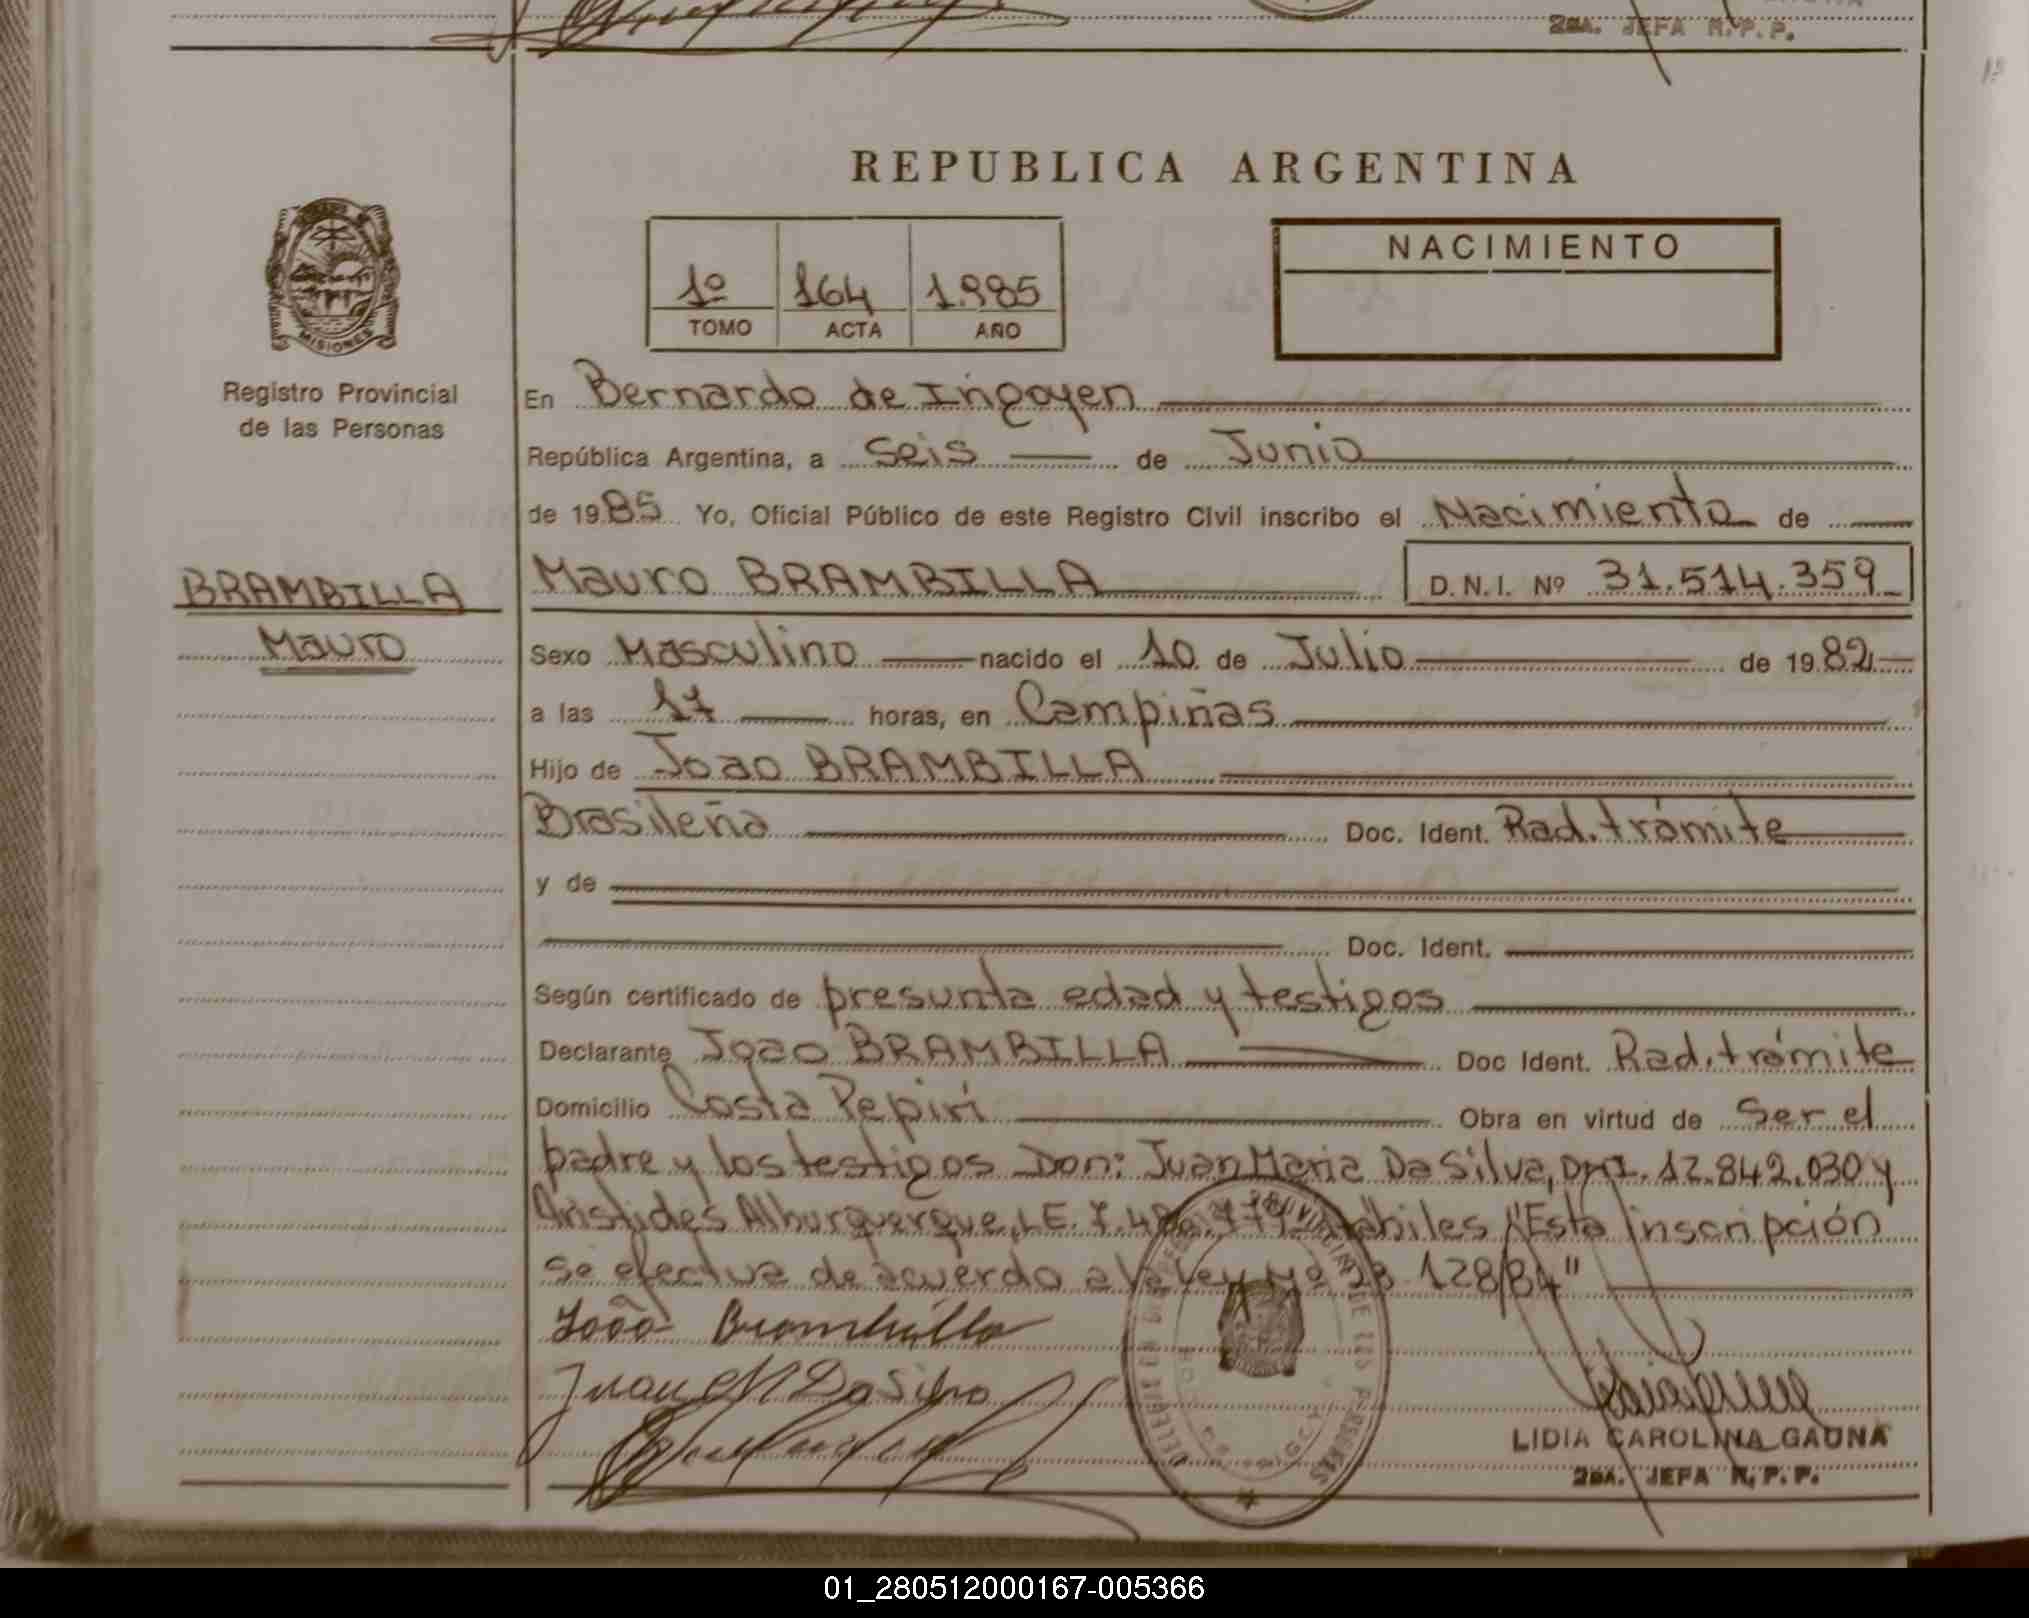 2da. JEFA R.P.P.
REPUBLICA ARGENTINA
MISIONES
Registro Provincial
de las Personas
1º 164 1.985
TOMO ACTA AÑO
NACIMIENTO
En Bernardo de Irigoyen
República Argentina, a Seis de Junio
de 1985 Yo, Oficial Público de este Registro Civil inscribo el Nacimiento de
BRAMBILLA
Mauro
Mauro BRAMBILLA D.N.I. Nº 31.514.359
Sexo Masculino nacido el 10 de Julio de 1982
a las 17 horas, en Campiñas
Hijo de Joao BRAMBILLA
Brasileña Doc. Ident. Rad. trámite
y de
Doc. Ident.
Según certificado de presunta edad y testigos
Declarante Joao BRAMBILLA Doc Ident. Rad. trámite
Domicilio Costa Pepirí Obra en virtud de Ser el
padre y los testigos Don: Juan Maria Da Silva, DNI. 12.842.030 y
Aristides Alburquerque, L.E. hábiles "Esta inscripción
se efectua de acuerdo a la Ley Nº 128/84"
João Brambilla
Juan M Da Silva
LIDIA CAROLINA GAUNA
2da. JEFA R.P.P.
01_280512000167-005366